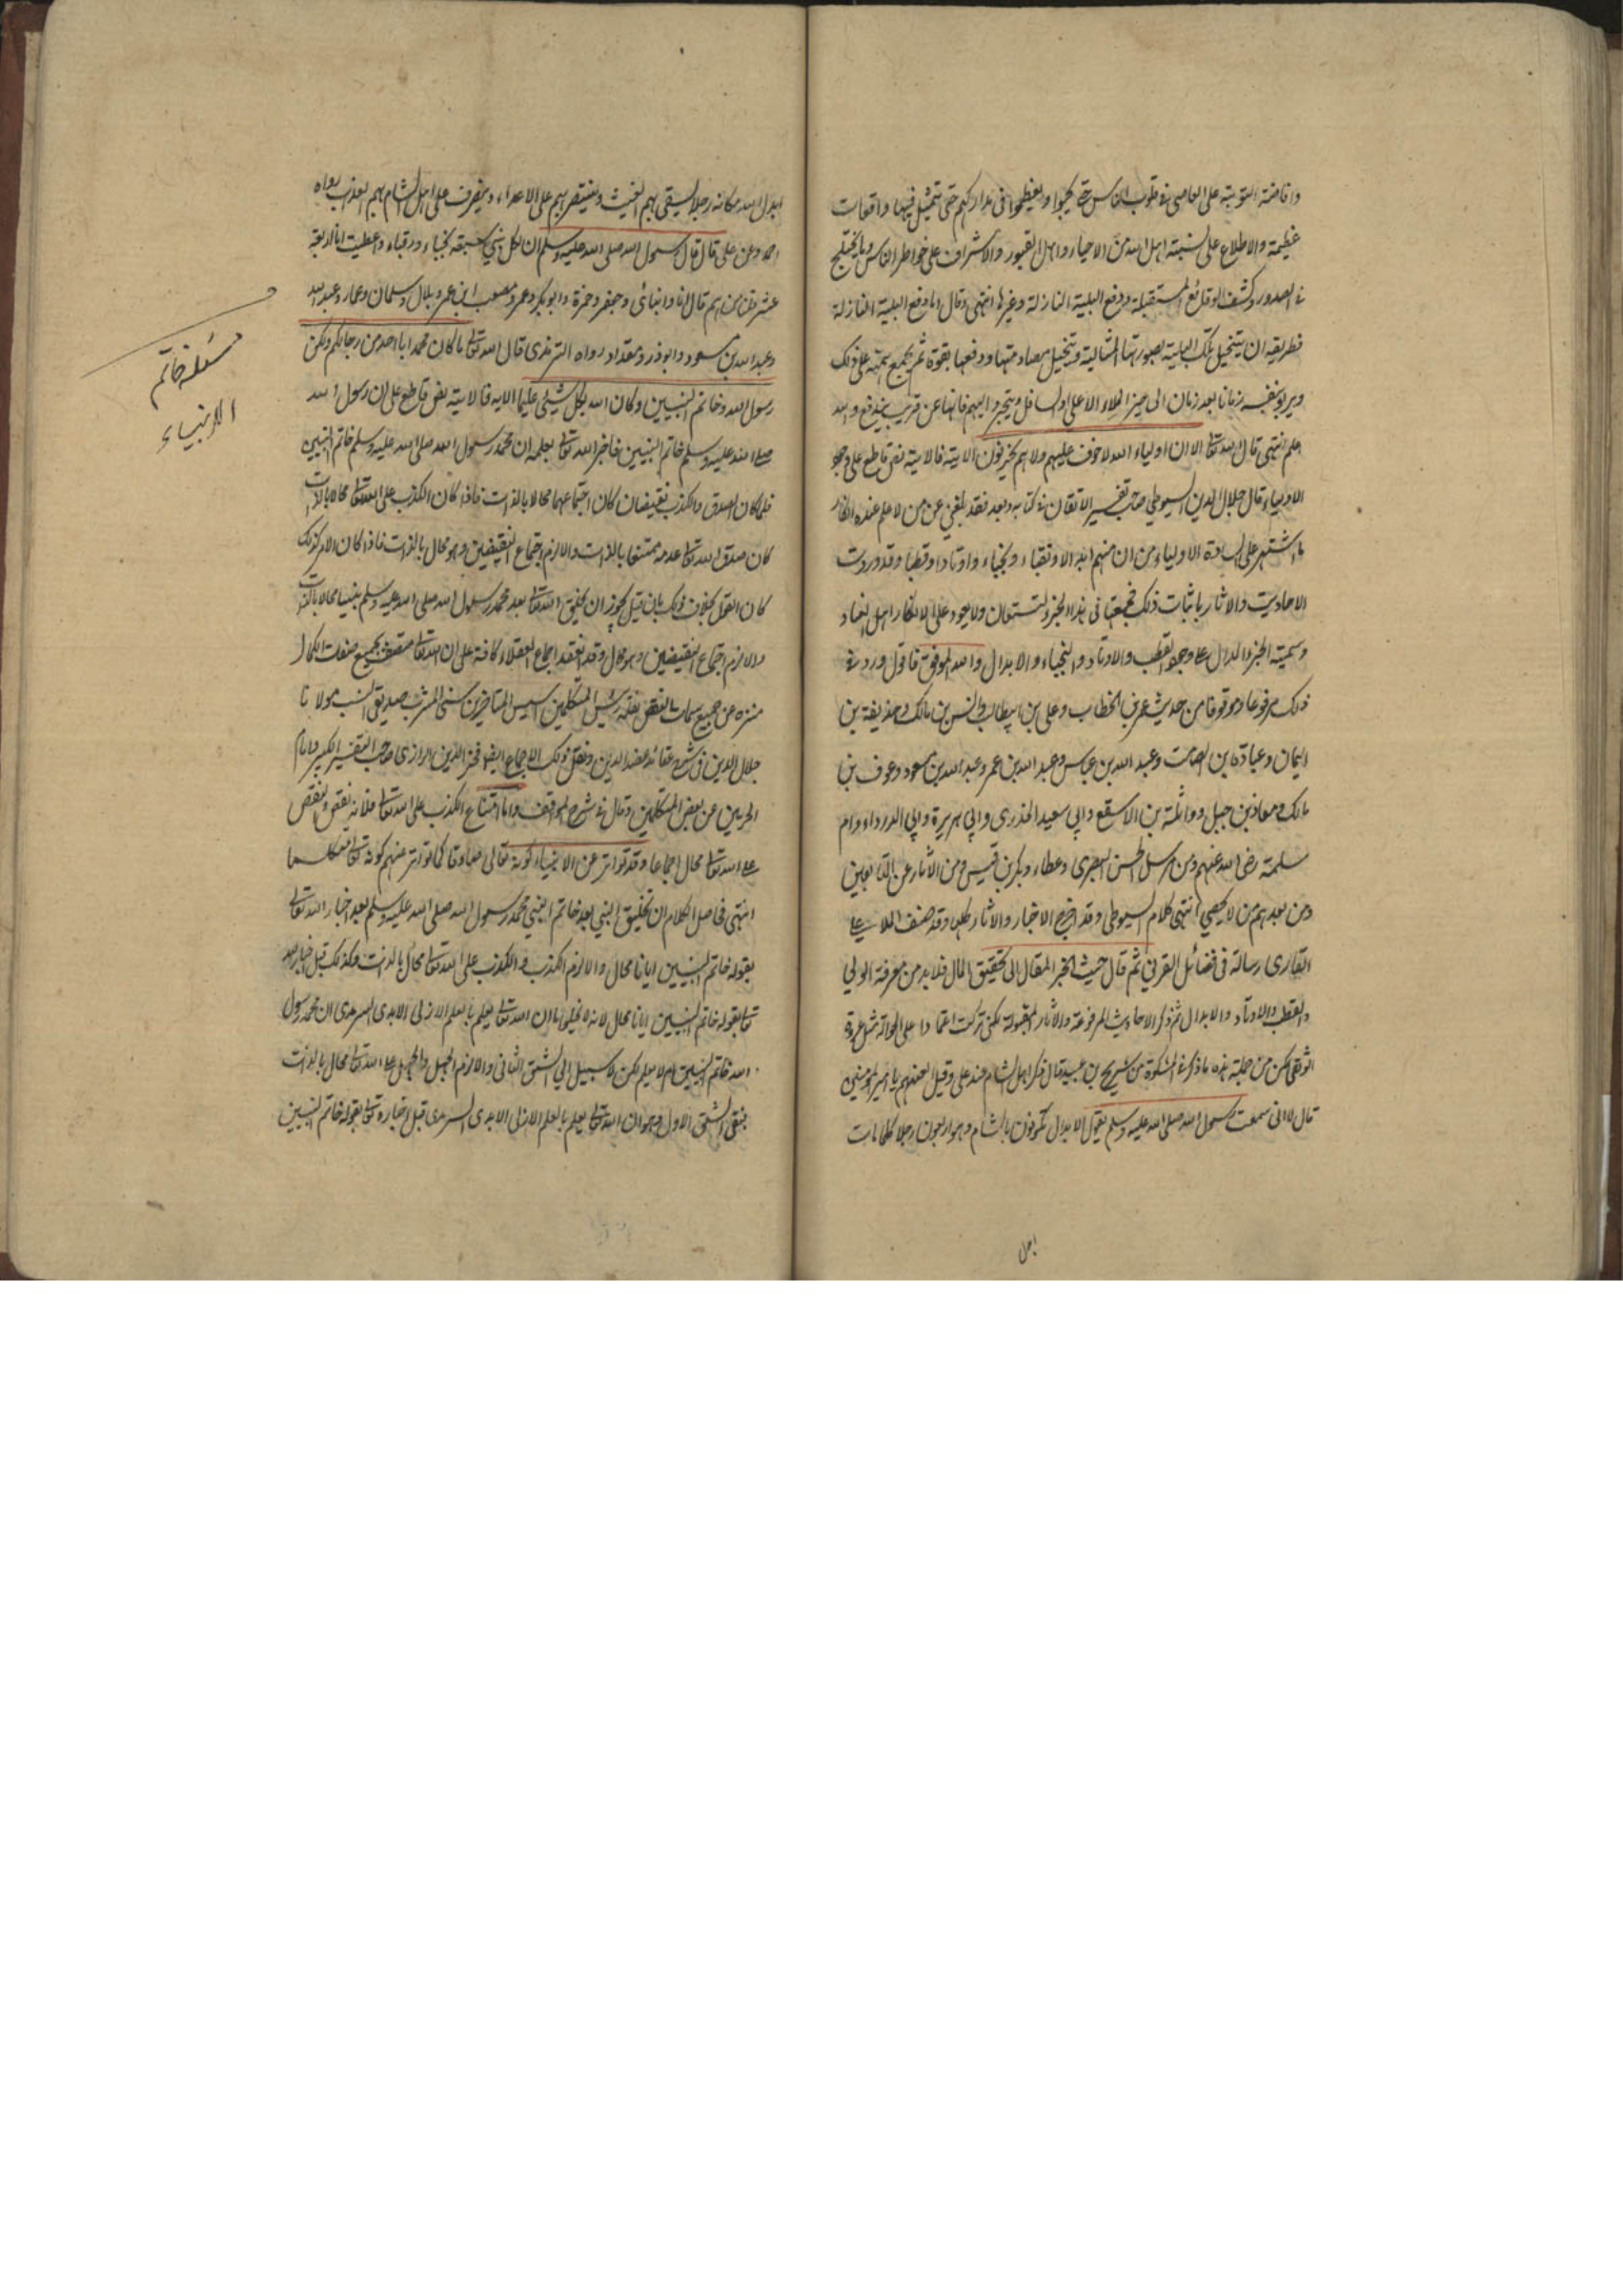 وافاضة التوبة على العاصى فى قلوب الناس حتى يحبوا ويعظموا فى مداركهم حتى تتمثل فيها واقعات
عظيمة والاطلاع على نسبة اهل الله من الاحياء واهل القبور والاشراف على خواطر الناس وما يختلج
فى الصدور وكشف الوقائع المستقبلة ودفع البلية النازلة وغيرها انتهى وقال اما دفع البلية النازلة
فطريقه ان يتخيل تلك البلية بصورتها المثالية ويتخيل مصادمتها ودفعها بقوة ثم يجمع همته على ذلك
زمانا بعد زمان الى حيز الملاء الاعلى او السافل ويتجرد اليهم فانها عن قريب يندفع والله
اعلم انتهى قال الله تعالى الا ان اولياء الله لا خوف عليهم ولا هم يحزنون الاية فالاية نص قاطع على وجود
الاولياء قال جلال الدين السيوطي صاحب تفسير الاتقان فى كتابه وبعد فقد بلغنى عن من لا علم عنده انكار
ما اشتهر على السادة الاولياء من ان منهم ابدالا ونقباء ونجباء واوتادا وقطبا وقد وردت
الاحاديث والاثار باثبات ذلك فجمعتها فى هذا الجزء لتستعان ولا يعود على الانكار اهل
وسميته الخبر الدال على وجود القطب والاوتاد والنجباء والابدال والله الموفق فاقول ورد فى
ذلك مرفوعا وموقوفا من حديث عمر بن الخطاب وعلى بن ابيطالب وانس بن مالك وحذيفة بن
اليمان وعبادة بن الصامت وعبد الله بن عباس وعبد الله بن عمر وعبد الله بن مسعود وعوف بن
مالك ومعاذ بن جبل وواثلة بن الاسقع وابي سعيد الخدرى وابي هريرة وابي الدرداء وام
سلمة رضى الله عنهم ومن مرسل الحسن البصرى وعطاء وبكر بن قيس ومن الاثار عن التابعين
ومن بعدهم من لا يحصى انتهى كلام السيوطى وقد اخرج الاخبار والاثار كلها وقد صنف الملا على
القارى رسالة فى فضائل القرنى ثم قال حيث انجر المقال الى تحقيق الحال فلا بد من معرفة الولي
والقطب والاوتاد والابدال ثم ذكر الاحاديث المرفوعة والاثار المقبولة لكنى تركت اعتمادا على
لكن من جملته هذه ما ذكر فى المشكوة من شريح بن عبيد قال ذكر اهل الشام عند على وقيل العنهم يا امير المومنين
قال لا انى سمعت رسول الله صلى الله عليه وسلم يقول الابدال يكونون بالشام وهم اربعون رجلا كلما مات
ابدل
ابدل الله مكانه رجلا يسقى بهم الغيث وينتصر بهم على الاعداء ويصرف عن اهل الشام بهم العذاب رواه
احمد وعن على قال قال رسول الله صلى الله عليه وسلم ان لكل نبي سبعة نجباء ورقباء واعطيت انا اربعة
عشر قلنا من هم قال انا وابنائى وجعفر وحمزة وابو بكر وعمر ومصعب ابن عمير وبلال وسلمان وعمار وعبد الله
وعبد الله بن مسعود وابو ذر ومقداد رواه الترمذى قال الله تعالى ما كان محمد ابا احد من رجالكم ولكن
رسول الله وخاتم النبيين وكان الله بكل شيئ عليما الاية فالاية نص قاطع على ان رسول الله
صلى الله عليه وسلم خاتم النبيين فاخبر الله تعالى بعلمه ان محمد رسول الله صلى الله عليه وسلم خاتم النبيين
فلما كان الصدق والكذب نقيضان كان اجتماعهما محالا بالذات فاذا كان الكذب على الله تعالى محالا بالذات
كان صدق الله تعالى عدمه ممتنعا بالذات والا لزم اجتماع النقيضين وهو محال بالذات فاذا كان الامر كذلك
كان القول بخلاف ذلك بان قيل يجوز ان يخلق الله تعالى بعد محمد رسول الله صلى الله عليه وسلم نبيا محالا بالذات
والا لزم اجتماع النقيضين وهو محال وقد انعقد اجماع العقلاء كافة على ان الله تعالى متصف بجميع صفات الكمال
منزه عن جميع سمات النقص نقله رئيس المتكلمين المتاخرين سنى المشرب صديقى النسب مولانا
جلال الدين فى شرح عقائد عضد الدين ونقل ذلك الاجماع ايضا فخر الدين الرازى صاحب التفسير الكبير وامام
الحرمين عن بعض المتكلمين وقال فى شرح المواقف واما امتناع الكذب على الله تعالى فلانه نقص والنقص
على الله تعالى محال اجماعا وقد تواتر عن الانبياء كونه تعالى صادقا كما تواتر عنهم كونه تعالى متكلما
انتهى فحاصل الكلام ان تخليق النبي بعد خاتم النبي محمد رسول الله صلى الله عليه وسلم بعد اخبار الله تعالى
بقوله خاتم النبيين ايانا محال والا لزم الكذب والكذب على الله تعالى محال بالذات وكذلك قبل اخبار الله
تعالى بقوله خاتم النبيين ايانا محال لانه لا يخلو اما ان الله تعالى يعلم بالعلم الازلى الابدى السرمدى ان محمد رسول
الله خاتم النبيين ام لا يعلم لكن لا سبيل الى الشق الثانى والا لزم الجهل والجهل على الله تعالى محال بالذات
فبقى الشق الاول وهو ان الله تعالى يعلم بالعلم الازلى الابدى السرمدى قبل اخباره تعالى بقوله خاتم النبيين
مسئلة خاتم
الانبياء